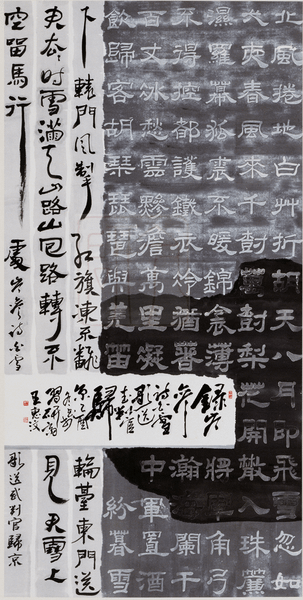 北風捲地白艸折胡天八月即飛雪忽如
一夜春風來千樹萬樹梨花開散入珠簾
濕羅幕狐裘不暖錦衾薄將軍角弓
不得控都護鐵衣冷猶著瀚海闌干
百丈冰愁雲黲澹萬里凝中軍置酒
飲歸客胡琴琵琶與羌笛紛紛暮雪
下轅門風掣紅旗凍不翻輪臺東門送
君去時雪滿天山路山回路轉不見君雪上
空留馬行處岑參詩白雪歌送武判官歸京
錄岑
參
詩白雪
歌送
武判官
歸
京乙酉